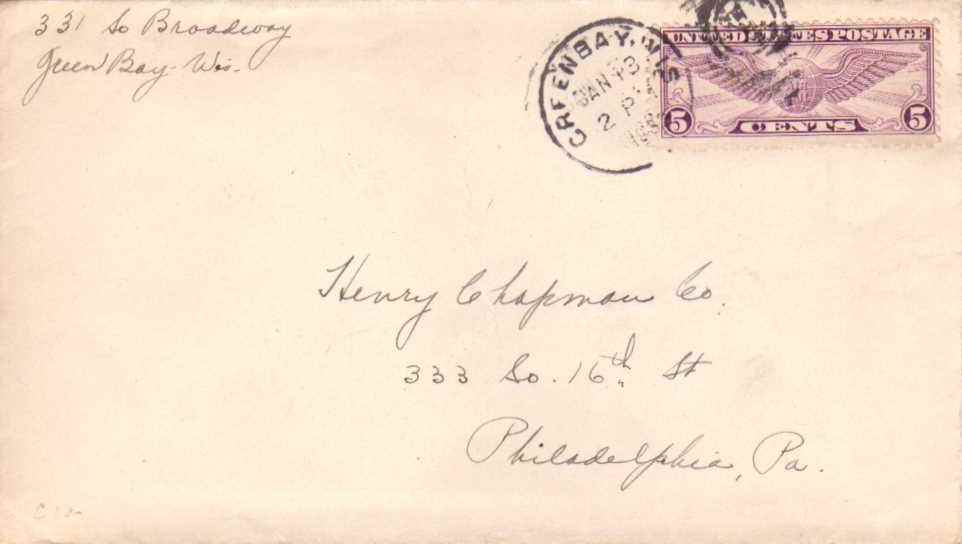 331 So Broadway
Green Bay Wis.
GREEN BAY, WIS
JAN 13
2 P
UNITED STATES POSTAGE
5 CENTS 5
Henry Chapman Co.
333 So. 16th St
Philadelphia, Pa.